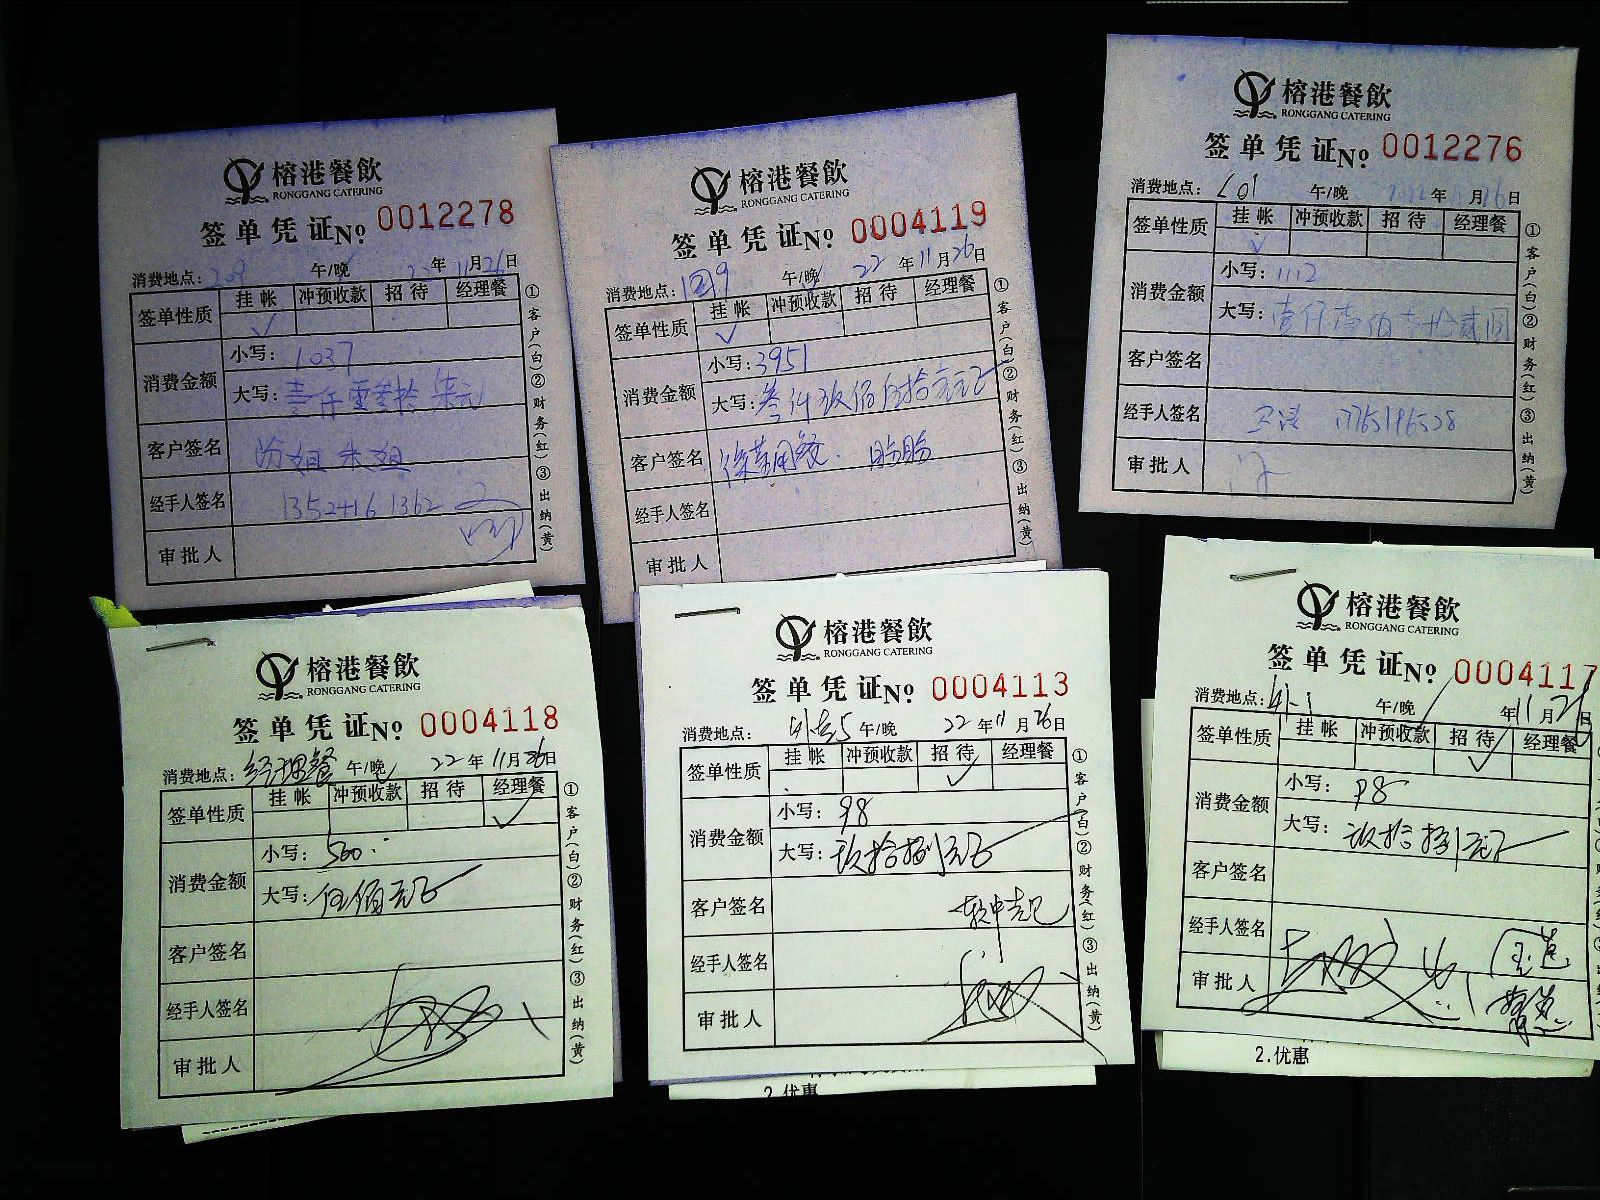 榕港餐飲
RONGGANG CATERING
签单凭证No 0012278
消费地点: 209 午/晚 22年11月26日
签单性质 挂帐 冲预收款 招待 经理餐
√
消费金额 小写: 1037
大写: 壹仟零叁拾柒元
客户签名
经手人签名 13524161362
审批人
①客户(白)②财务(红)③出纳(黄)
榕港餐飲
RONGGANG CATERING
签单凭证No 0004119
消费地点: 午/晚 22年11月26日
签单性质 挂帐 冲预收款 招待 经理餐
√
消费金额 小写: 3951
大写: 叁仟玖佰伍拾壹元正
客户签名
经手人签名
审批人
①客户(白)②财务(红)③出纳(黄)
榕港餐飲
RONGGANG CATERING
签单凭证No 0012276
消费地点: 午/晚 2022年 月26日
签单性质 挂帐 冲预收款 招待 经理餐
√
消费金额 小写: 1112
大写: 壹仟壹佰壹拾贰圆
客户签名
经手人签名
审批人
①客户(白)②财务(红)③出纳(黄)
榕港餐飲
RONGGANG CATERING
签单凭证No 0004118
消费地点: 经理餐 午/晚 22年11月26日
签单性质 挂帐 冲预收款 招待 经理餐
√
消费金额 小写: 500
大写: 伍佰元正
客户签名
经手人签名
审批人
①客户(白)②财务(红)③出纳(黄)
榕港餐飲
RONGGANG CATERING
签单凭证No 0004113
消费地点: 午/晚 22年11月26日
签单性质 挂帐 冲预收款 招待 经理餐
√
消费金额 小写: 98
大写: 玖拾捌元正
客户签名
经手人签名
审批人
①客户(白)②财务(红)③出纳(黄)
2.优惠
榕港餐飲
RONGGANG CATERING
签单凭证No 0004117
消费地点: 午/晚 年11月26日
签单性质 挂帐 冲预收款 招待 经理餐
√
消费金额 小写: 98
大写: 玖拾捌元正
客户签名
经手人签名
审批人
2.优惠